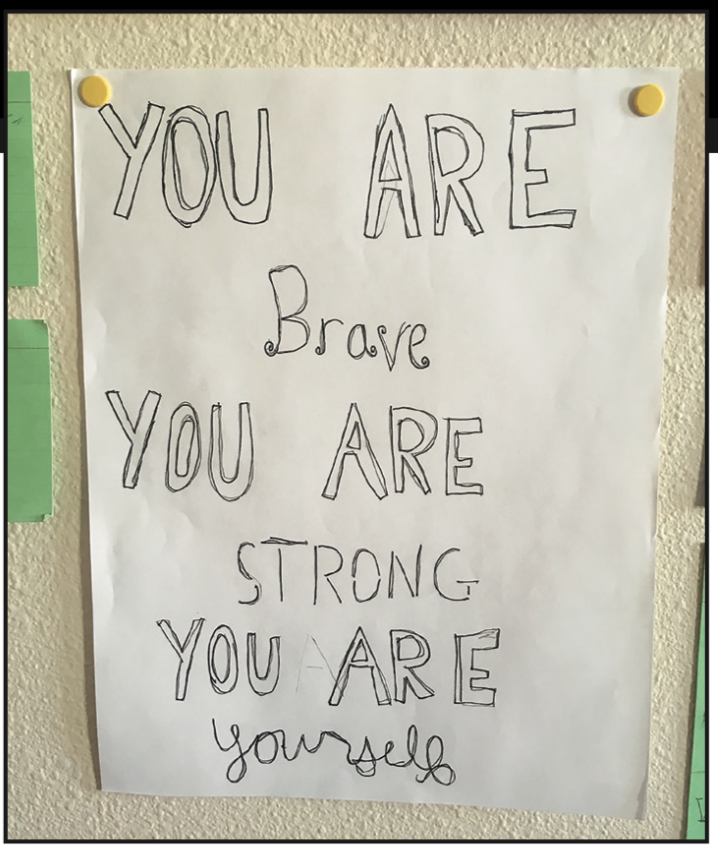 YOU ARE
Brave
YOU ARE
STRONG
YOU ARE
yourself